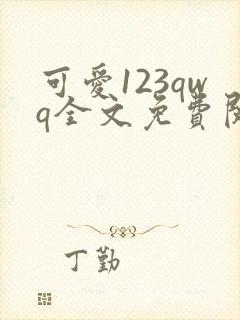 可愛123qw
q全文免費閱
丁勤